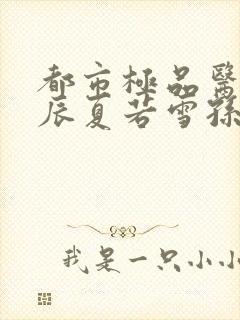 都市極品醫
辰夏若雪孫
我是一只小小